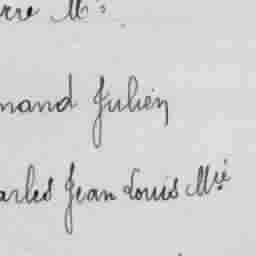 rre M
mand Julien
arles Jean Louis Mie